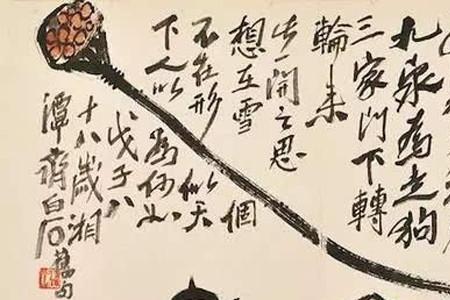 九泉為走狗
三家門下轉
輪来
此一開之思
想在雪個
不在形似天
下人以為何如
戊子八
十八歲湘
潭齊白石舊句